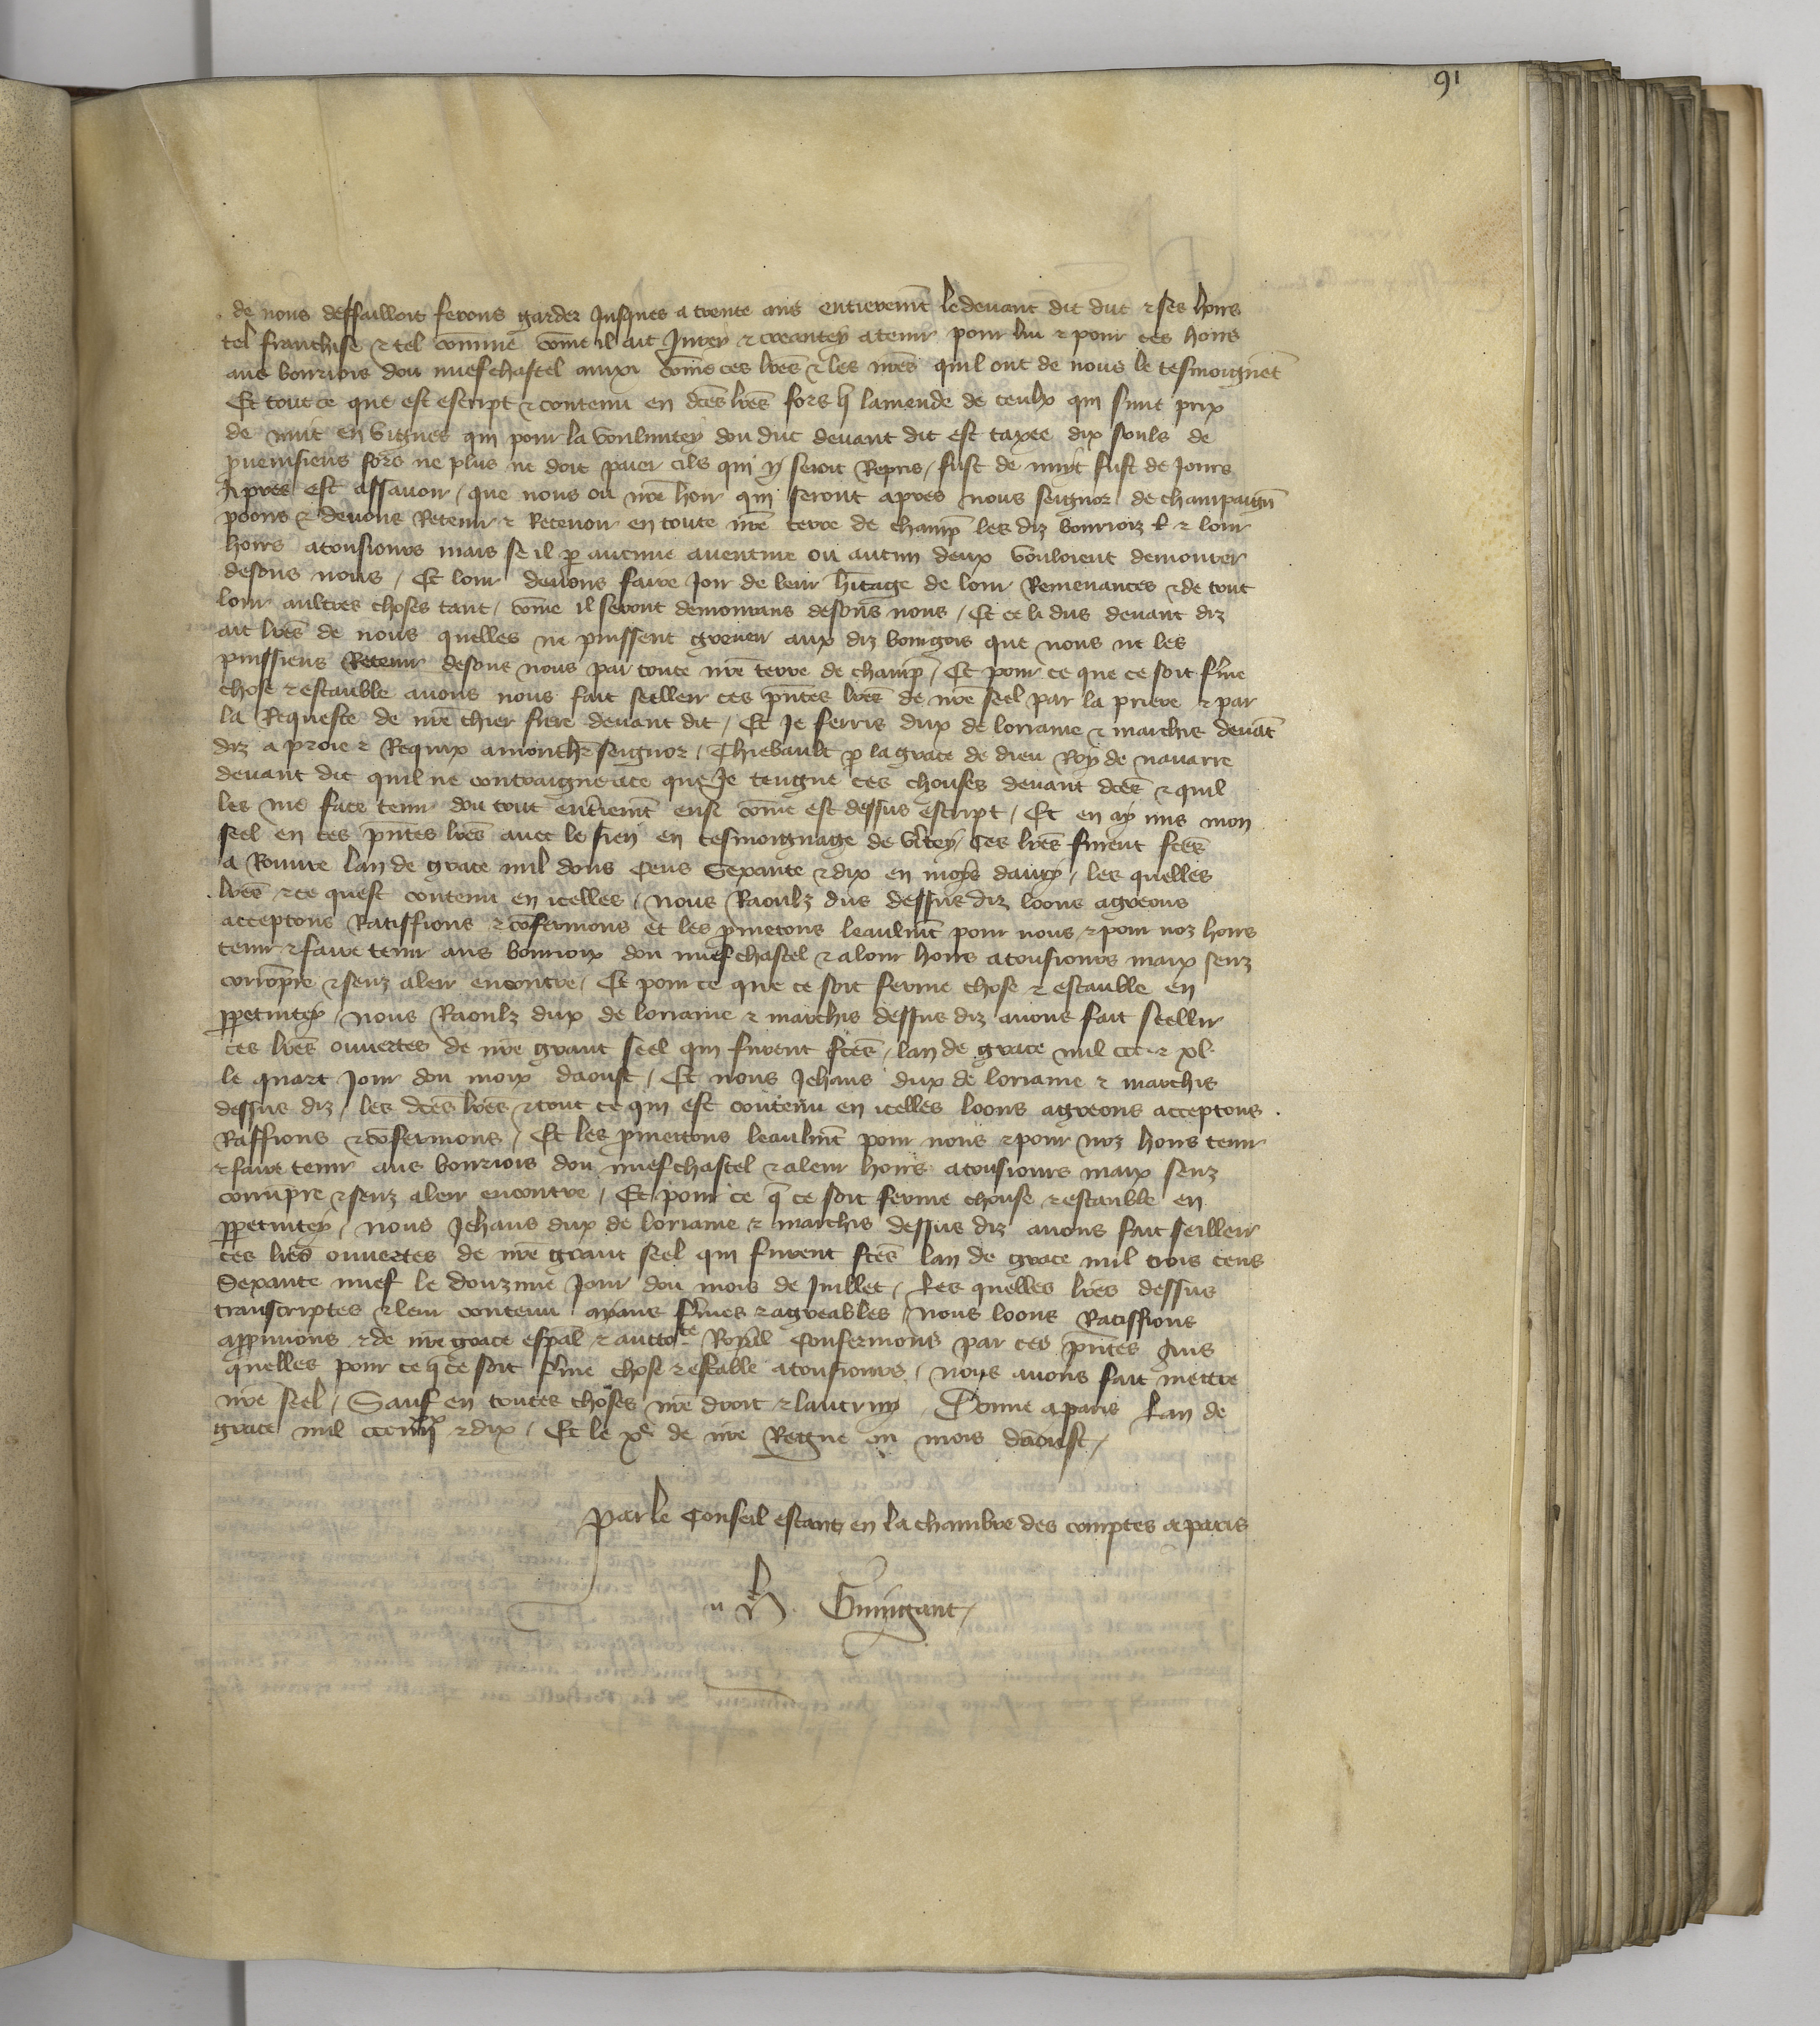 91
de nous deffailloit ferons garder Jusques a trente ans entierem̃t le devant dit duc & ses hoirs
tel franchise & tel comune com̃e il ait Jurey & creantey a tenir pour lui & pour ces hoirs
aus bourriois dou nuefchastel auxi com̃e ces lr̃es & les nr̃es quil ont de nous le tesmoignẽt
Et tout ce que est escript & contenu en dc̃es lr̃es fors q̃ lamende de ceulx qui sunt prix
de nuit en vignes qui pour la voluntey dou duc devant dit est taxee dix souls de
pruvenisiens fors ne plus ne doit paier cils qui y seroit Repris / fust de nuyt fust de Jours
Apres est assavoir / que nous ou nr̃e hoir qui seront apres nous seignor de champaign̄
poons & devons Retenir & Recevoir en toute nr̃e terre de champ̄ les diz bourrioiz & lour
hoirs a tousiours mais se il p aucune aventure ou aucun deux vouloient demourer
desous nous / Et lour devons faire Joir de leur h̃itage de lour Remenances & de tout
lour aultres choses tant / com̃e il seront demourans desoũs nous / Et ce li dus devant diz
ait lr̃es de nous quelles ne puissent grever aux diz bourgois que nous ne les
puissiens Retenir desous nous par toute nr̃e terre de champ̄ / Et pour ce que ce soit f̃me
chose & estauble avons nous fait seelleir ces p̃ntes lr̃es de nr̃e seel par la priere & par
la Requeste de nr̃e chier frere devant dit / Et Je ferris dux de lorraine & marchis devãt
diz a proie & Requix a mon ch̃r seignor / Thiebault p la grace de dieu Roy de navarre
devant dit quil ne contraigne a ce que Je teugne ces chouses devant dc̃es & quil
les me face tenir dou tout entierem̃t ensi com̃e est dessus escript / Et en ay mis mon
seel en ces p̃ntes lr̃es avec le sien en tesmoignage de v̾tey / Ces lr̃es furent fc̃es
a Rouvre lan de grace mil dous Cens Sexante & dix en moys davry / les quelles
lr̃es & ce quest contenu en icelles / nous Raoulz dus dessus diz loons agreons
acceptons Ratiffions & cõfermons et les p̃metons leaulm̃t pour nous & pour noz hoirs
tenir & faire tenir aus bourrioix dou nuefchastel & a lour hoirs a tousiours maix senz
corrõpre & senz aleir encontre / Et pour ce que ce soit ferme chose & estauble en
ppetuitey / nous Raoulz dux de lorraine & marchis dessus diz avons fait seellir
ces lr̃es ouvertes de nr̃e grant seel qui furent fc̃es / lan de grace mil ccc & xl
le quart Jour dou moix daoust / Et nous Jehans dux de lorraine & marchis
dessus diz / les dc̃es lr̃es & tout ce qui est contenu en icelles loons agreons acceptons
Raffions & cõfermons / Et les p̃mettons leaulm̃t pour nous & pour noz hoirs tenir
& faire tenir aus bourriois dou nuefchastel & a leur hoirs a tousiours maix senz
corrũpre & senz aleir encontre / Et pour ce q̃ ce soit ferme chouse & estauble en
ppetuitey / nous Jehans dux de lorraine & marchis dessus diz avons fait seilleir
ces lr̃es ouvertes de nr̃e grant seel qui furent fc̃es lan de grace mil trois cens
Sexante nuef le douzime Jour dou mois de Juillet / Les quelles lr̃es dessus
transcriptes & leur contenu ayans f̃mes & agreables / nous loons Ratiffions
approuvons & de nr̃e grace esp̃al & auctote Royal Confermons par ces p̃ntes Aus
quelles pour ce q̃ ce soit f̃me chose & estable a tousiours / nous avons fait mettre
nr̃e seel / Sauf en toutes choses nr̃e droit & lautruy / Donne a paris Lan de
grace mil ccc iiiixx & dix / Et le xe de nr̃e Regne ou mois daoust /
Par le Conseil estant en la chambre des comptes a paris
H. Guingant /